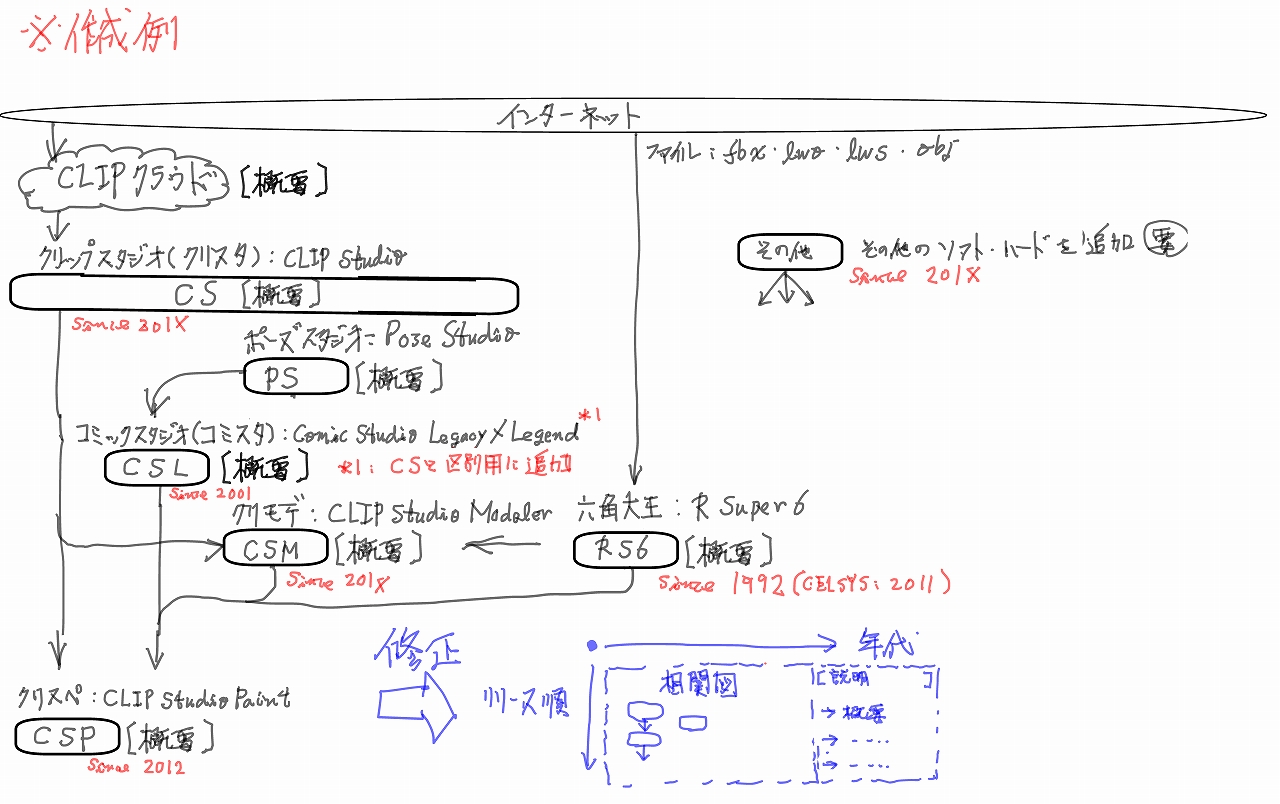 ※作成例
インターネット
ファイル：fbx・lwo・lws・obj
CLIPクラウド [概要]
クリップスタジオ(クリスタ)：CLIP Studio
CS [概要]
Since 201X
その他 その他のソフト・ハードを追加
Since 201X
ポーズスタジオ：Pose Studio
PS [概要]
コミックスタジオ(コミスタ)：Comic Studio Legacy/Legend *1
CSL [概要] *1：CSと区別用に追加
Since 2001
クリモデ：CLIP Studio Modeler
CSM [概要]
Since 201X
六角大王：R Super 6
RS6 [概要]
Since 1992 (CELSYS：2011)
クリスペ：CLIP Studio Paint
CSP [概要]
Since 2012
修正
年代
リリース順
相関図
[説明]
→概要
→-----
→-----